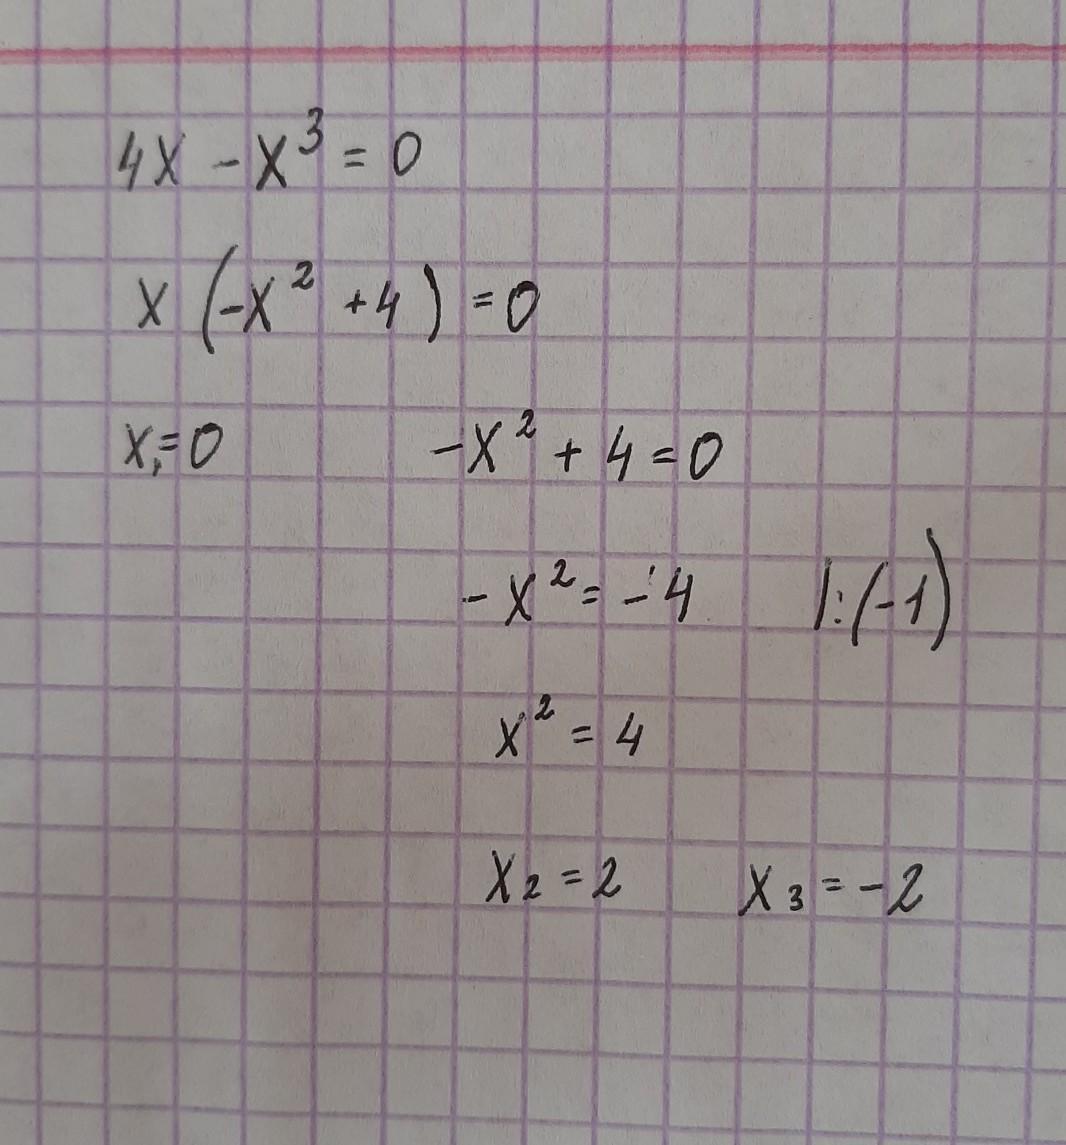 4x - x³ = 0
x (-x² + 4) = 0
x₁ = 0 -x² + 4 = 0
-x² = -4 |:(-1)
x² = 4
x₂ = 2 x₃ = -2